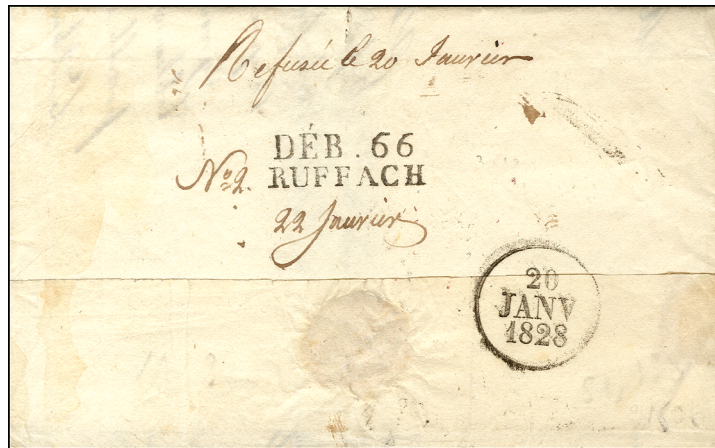 Refusée le 20 Janvier
DÉB. 66
No 2. RUFFACH
22 Janvier
20
JANV
1828